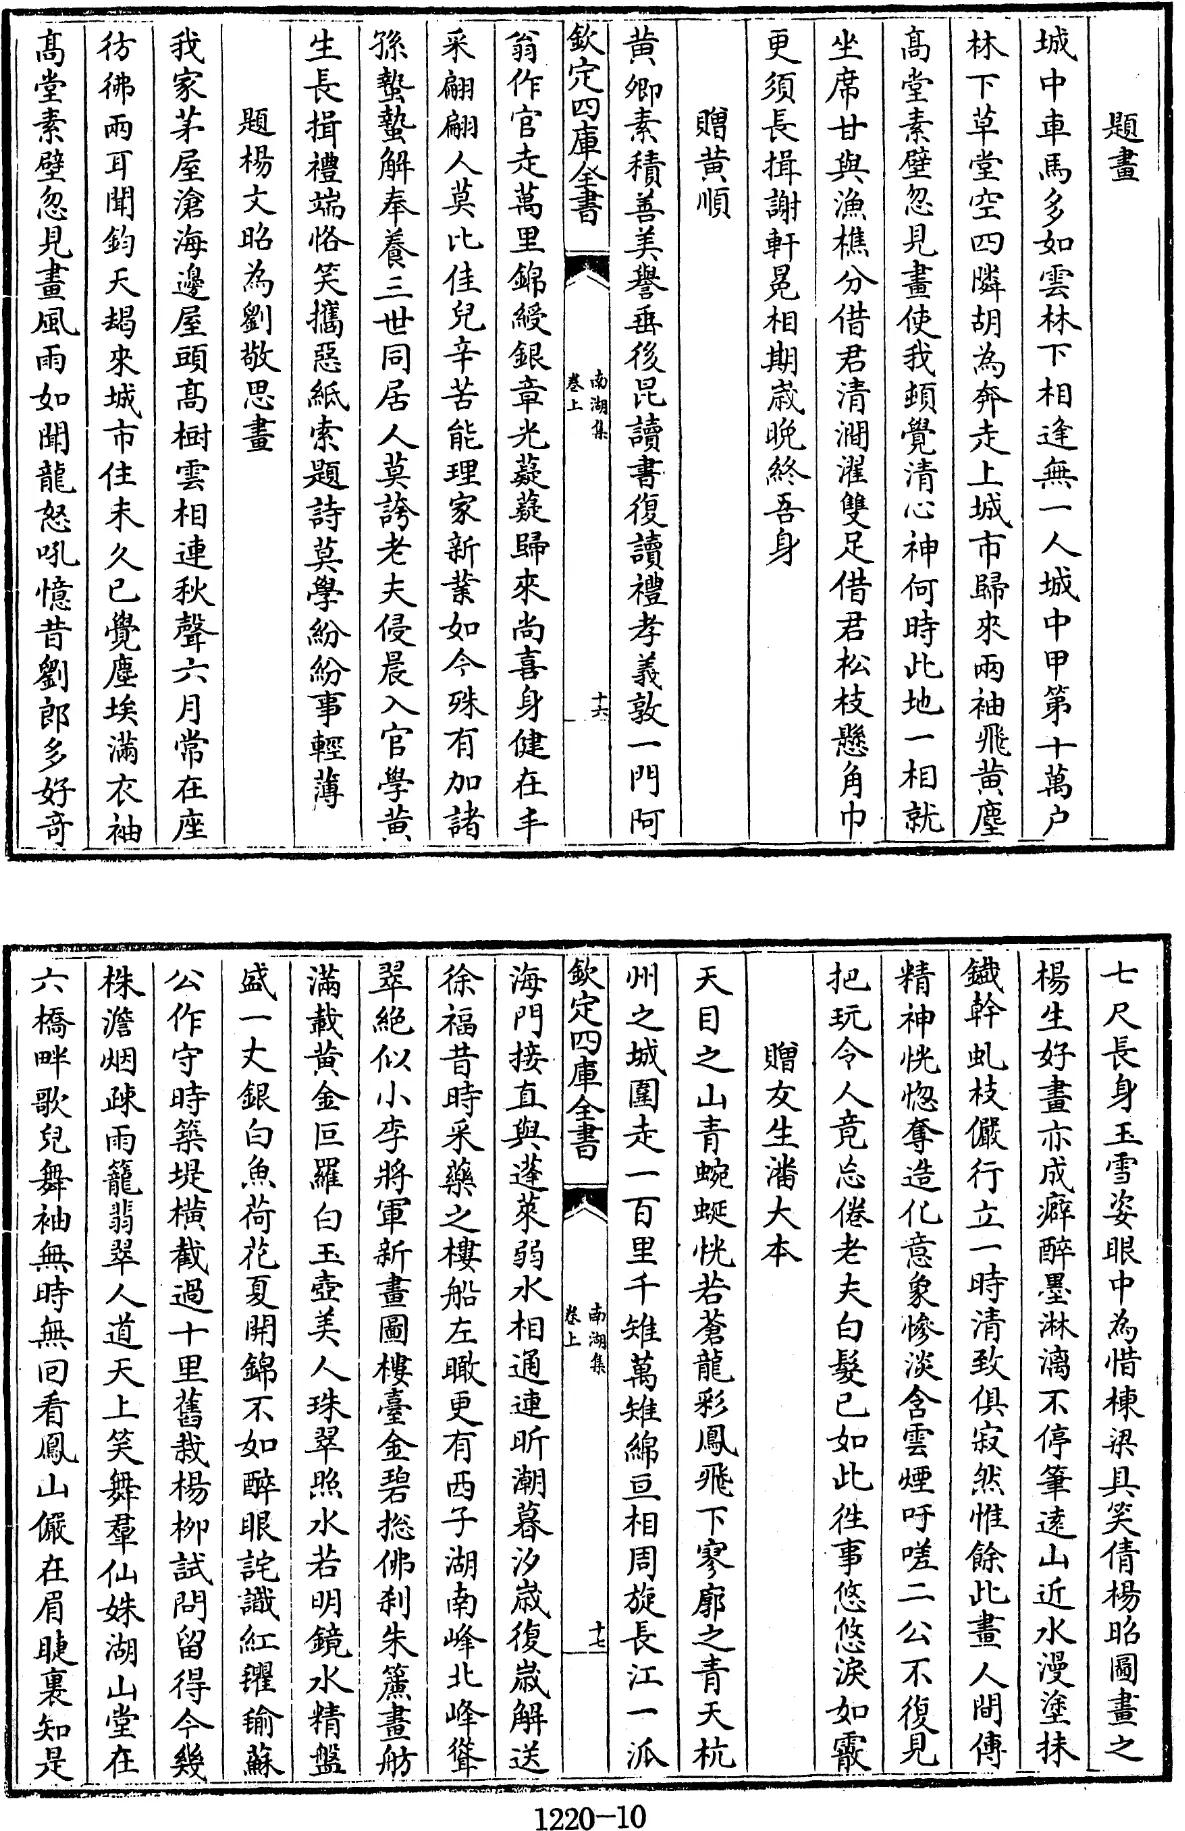 題畫
城中車馬多如雲林下相逢無一人城中甲第十萬户
林下草堂空四隣胡為奔走上城市歸來兩袖飛黄塵
髙堂素壁忽見畫使我頓覺清心神何時此地一相就
坐席甘與漁樵分借君清澗濯雙足借君松枝懸角巾
更須長揖謝軒冕相期嵗晩終吾身
贈黄順
黄卿素積善美譽垂後昆讀書復讀禮孝義敦一門阿
欽定四庫全書
南湖集
卷上
十六
翁作官走萬里錦綬銀章光薿薿歸來尚喜身健在手
采翩翩人莫比佳兒辛苦能理家新業如今殊有加諸
孫蟄蟄解奉養三世同居人莫誇老夫侵晨入官學黄
生長揖禮端恪笑攜惡紙索題詩莫學紛紛事輕薄
題楊文昭為劉敬思畫
我家茅屋滄海邊屋頭髙樹雲相連秋聲六月常在座
彷彿兩耳聞鈞天朅來城市住未久已覺塵埃滿衣袖
髙堂素壁忽見畫風雨如聞龍怒吼憶昔劉郎多好竒
七尺長身玉雪姿眼中為惜棟梁具笑倩楊昭圖畫之
楊生好畫亦成癖醉墨淋漓不停筆逺山近水漫塗抹
鐡幹虬枝儼行立一時清致俱寂然惟餘此畫人間傳
精神恍惚奪造化意象慘淡含雲煙吁嗟二公不復見
把玩令人竟忘倦老夫白髮已如此徃事悠悠淚如霰
贈友生潘大本
天目之山青蜿蜒恍若蒼龍彩鳳飛下寥廓之青天杭
州之城圍走一百里千雉萬雉綿亘相周旋長江一派
欽定四庫全書
南湖集
卷上
十七
海門接直與蓬萊弱水相通連昕潮暮汐嵗復嵗解送
徐福昔時采藥之樓船左瞰更有西子湖南峰北峰聳
翠絶似小李將軍新畫圖樓臺金碧捴佛刹朱簾畫舫
滿載黄金叵羅白玉壺美人珠翠照水若明鏡水精盤
盛一丈銀白魚荷花夏開錦不如醉眼詫識紅氍毹蘇
公作守時築堤橫截過十里舊栽楊柳試問留得今幾
株澹烟疎雨籠翡翠人道天上笑舞羣仙姝湖山堂在
六橋畔歌兒舞袖無時無回看鳳山儼在眉睫裏知是
1220-10